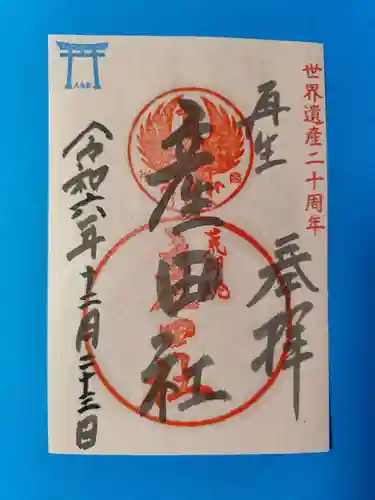 世界遺産二十周年
再生
奉拜
産田社
令和六年十二月二十三日